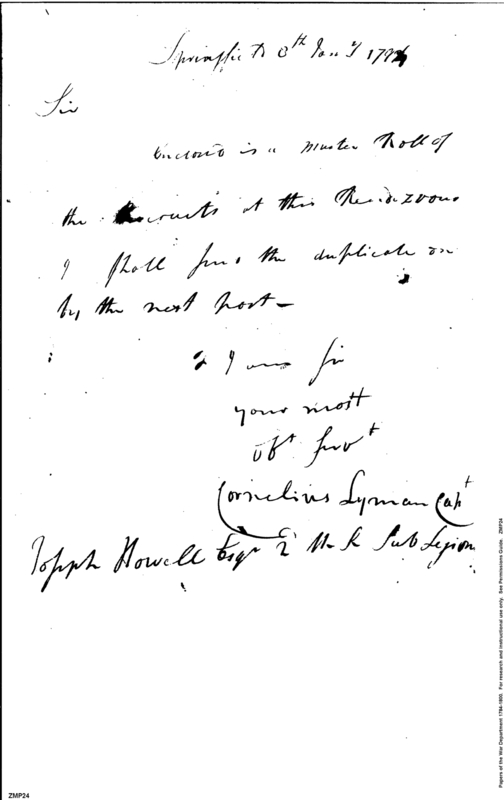 Springfield 8th Jany 179
Sir
Enclosed is a Muster Roll of
the Recruits at this Rendezvous
I shall send the duplicate on
by the next post—
I am Sir
your most
obt servt
Cornelius Lyman Capt
Joseph Howell Esqr 2 Sub Legion
ZMP24
Papers of the War Department 1784-1800. For research and instructional use only. See Permissions Guide. ZMP24